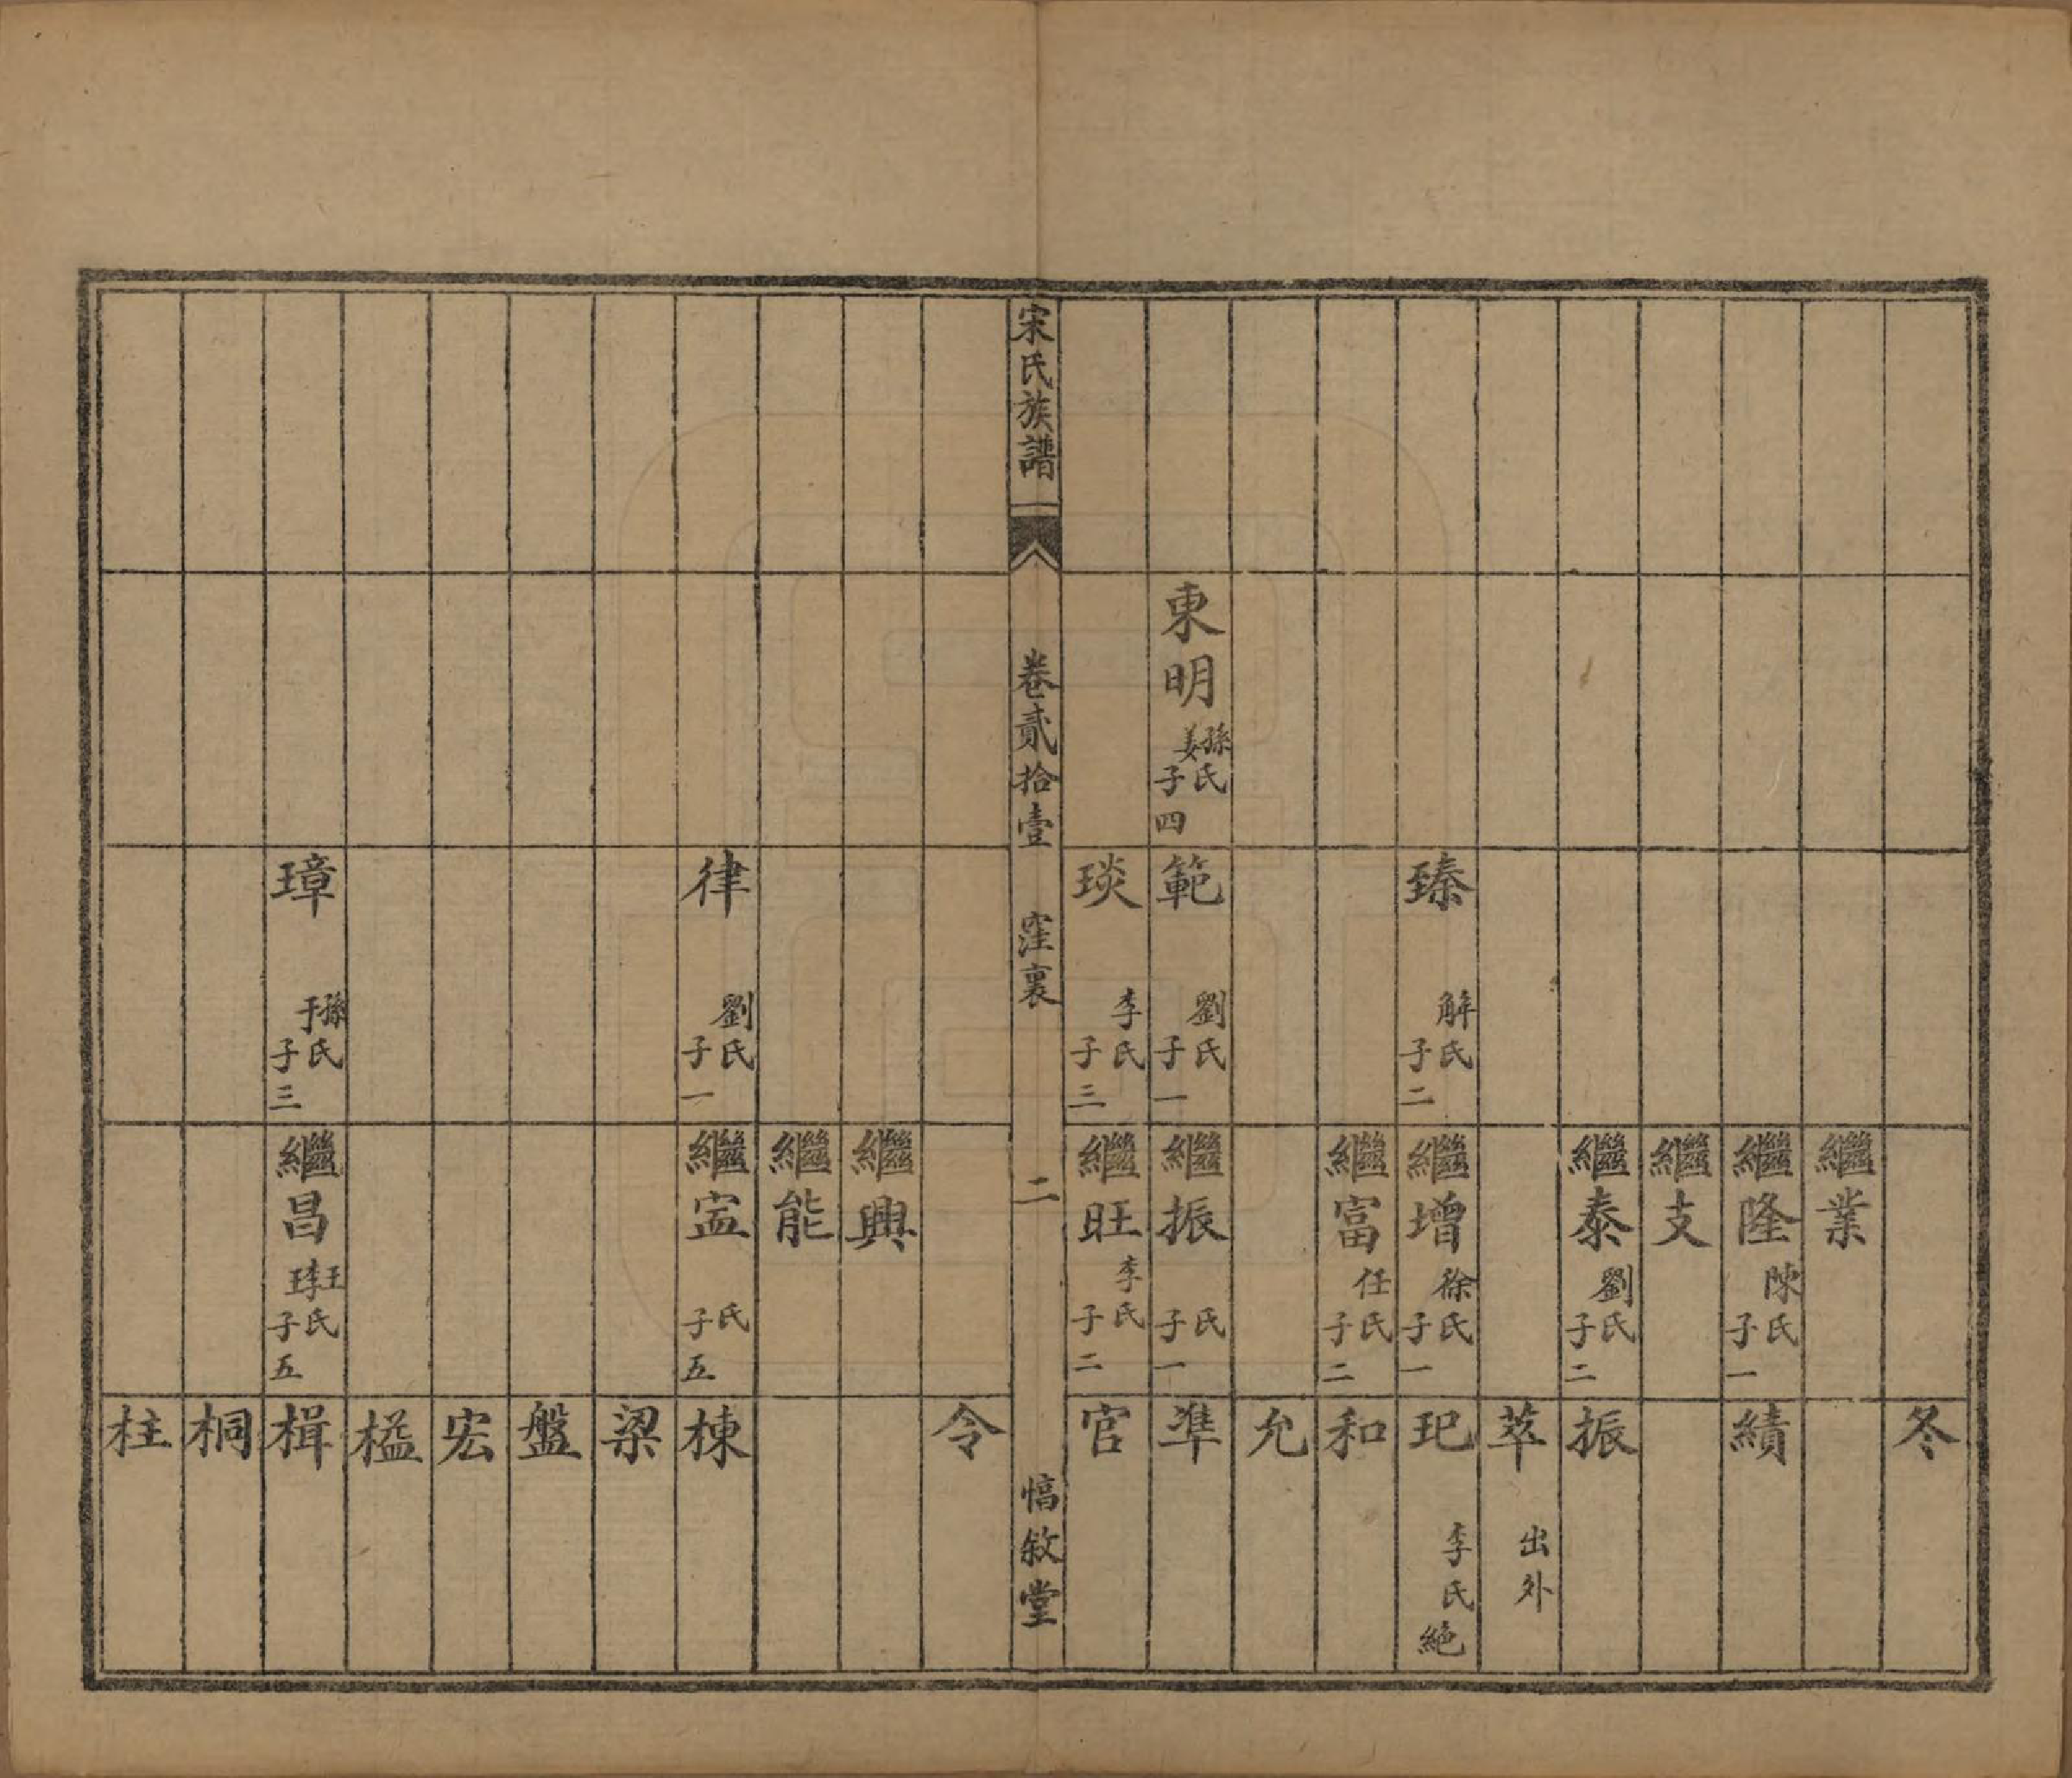 冬
繼業
繼隆 陳氏 子一
績
繼支
繼泰 劉氏 子二
振
萃 出外
臻 解氏 子二
繼增 徐氏 子一
玘 李氏 絶
繼富 任氏 子二
和
允
東明 孫姜氏 子四
範 劉氏 子一
繼振 氏 子一
準
琰 李氏 子三
繼旺 李氏 子二
官
宋氏族譜
卷貳拾壹 窪裏
二
惇敘堂
令
繼興
繼能
律 劉氏 子一
繼寍 氏 子五
棟
梁
盤
宏
榏
璋 孫于氏 子三
繼昌 王李王氏 子五
楫
桐
柱